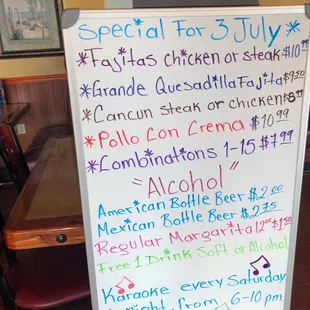 Special For 3 July *
*Fajitas chicken or steak $10.99
*Grande Quesadilla Fajita $9.50
*Cancun steak or chicken $8.99
*Pollo Con Crema $10.99
*Combinations 1-15 $7.99
"Alcohol"
American Bottle Beer $2.00
Mexican Bottle Beer $2.75
Regular Margarita 12oz $1.50
Free 1 Drink Soft or Alcohol
Karaoke every Saturday
night from 6-10 pm